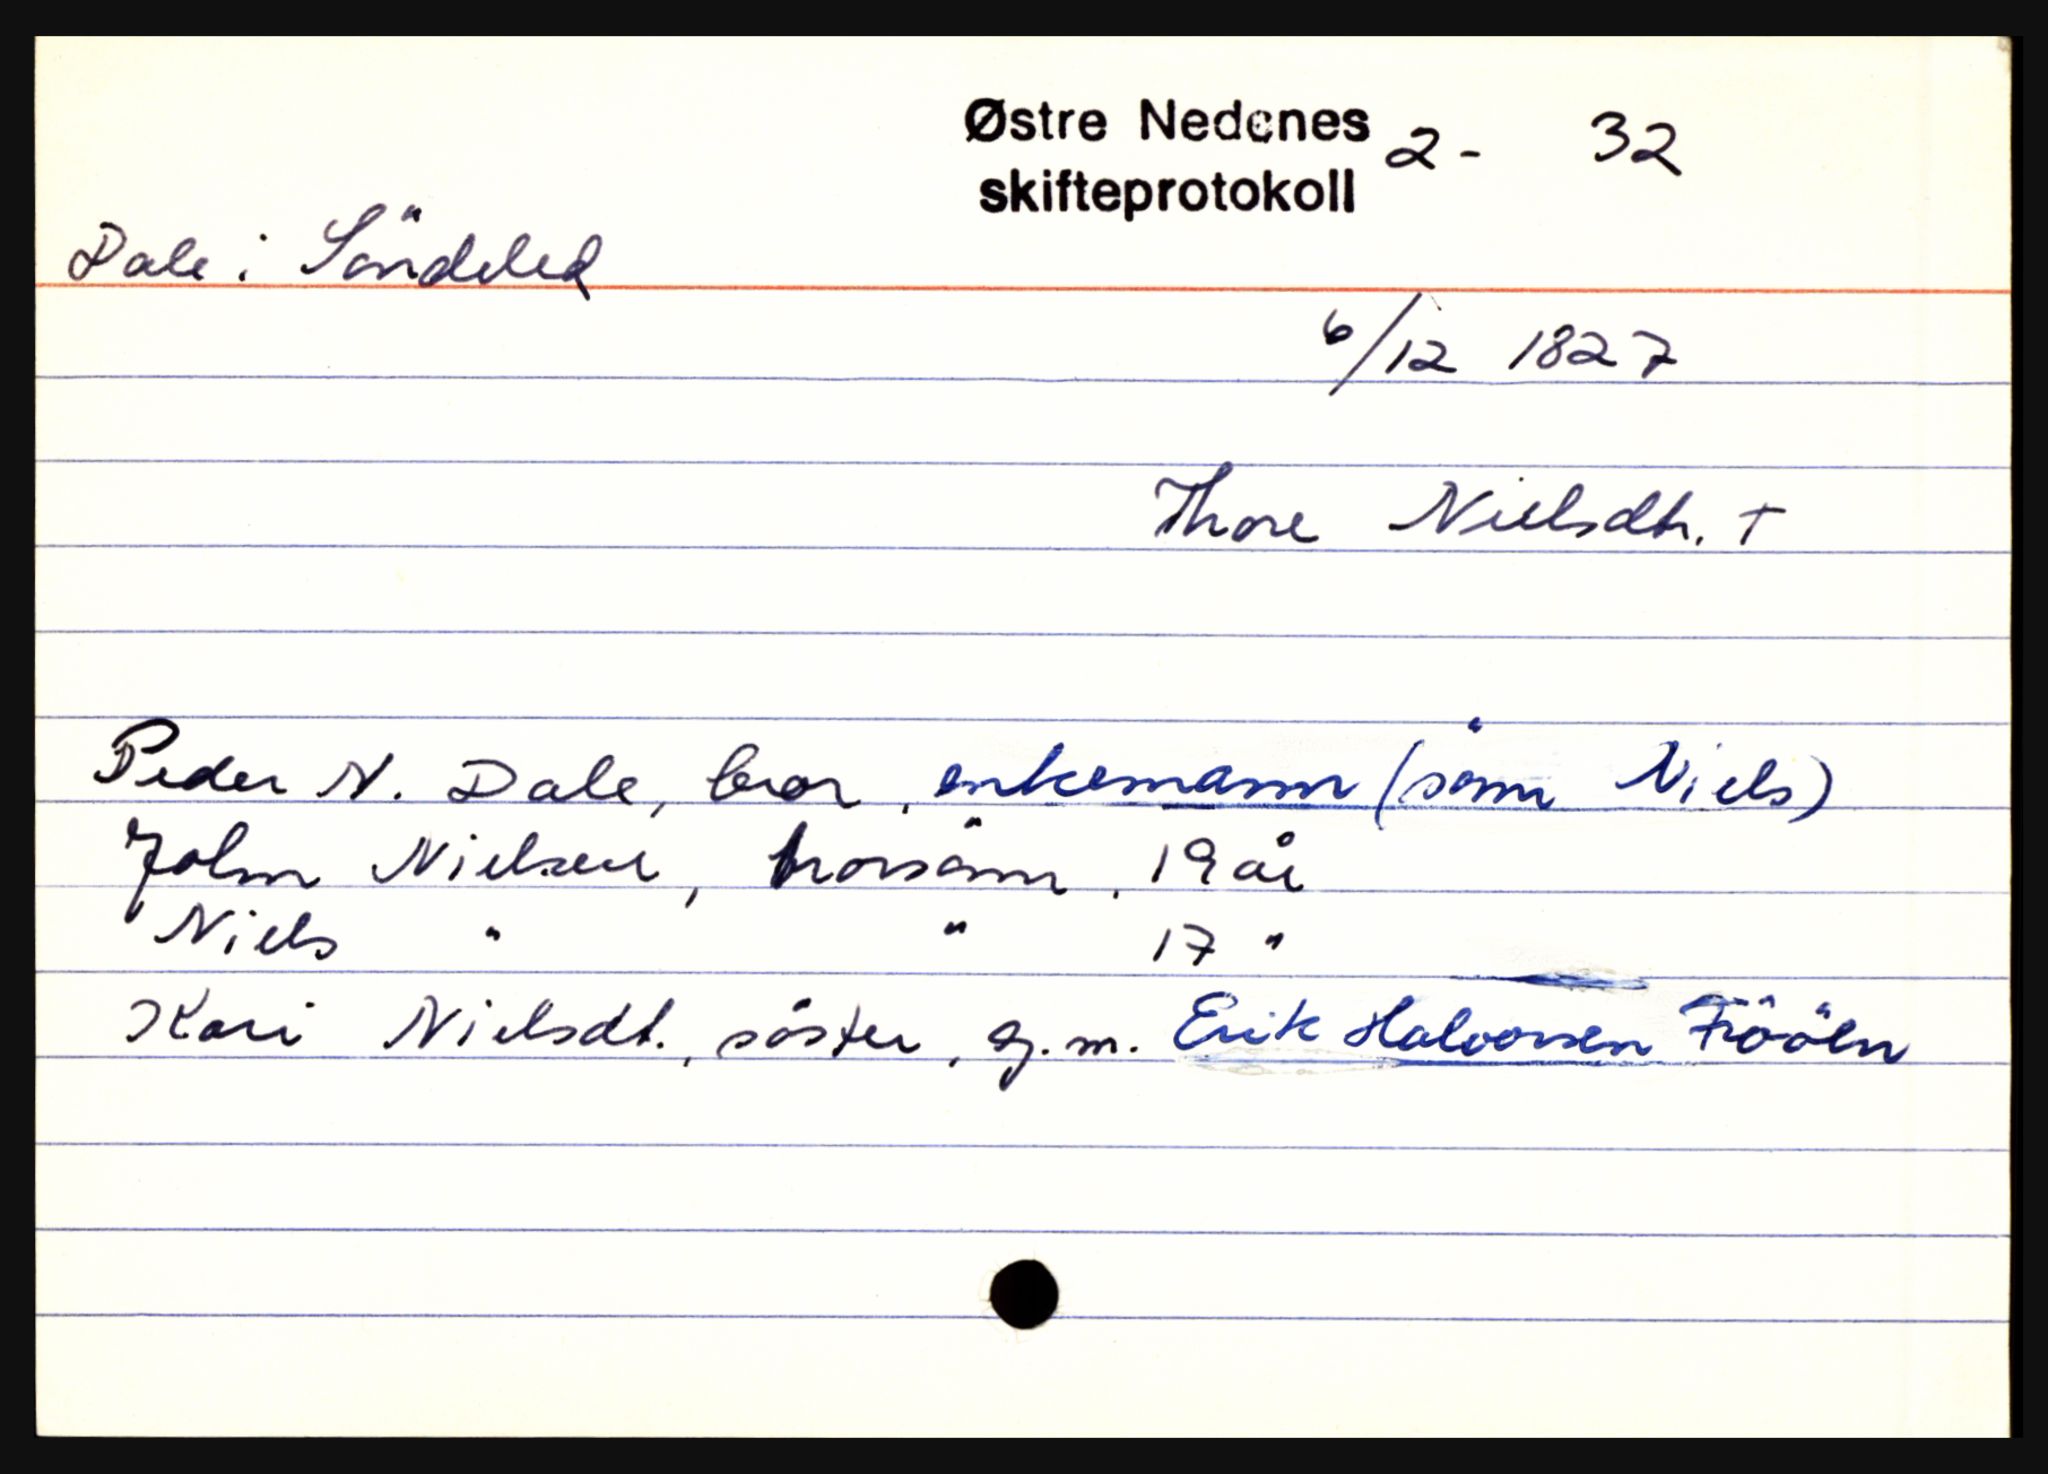 Østre Nedenes 2- 32
skifteprotokoll
Dale i Söndeled
6/12 1827
Thore Nielsdtr. +
Peder N. Dale, bror, enkemann (sönn Niels)
John Nielsen, brorsönn, 19 år
Niels " " 17 "
Kari Nielsdt., söster, g.m. Erik Halvorsen